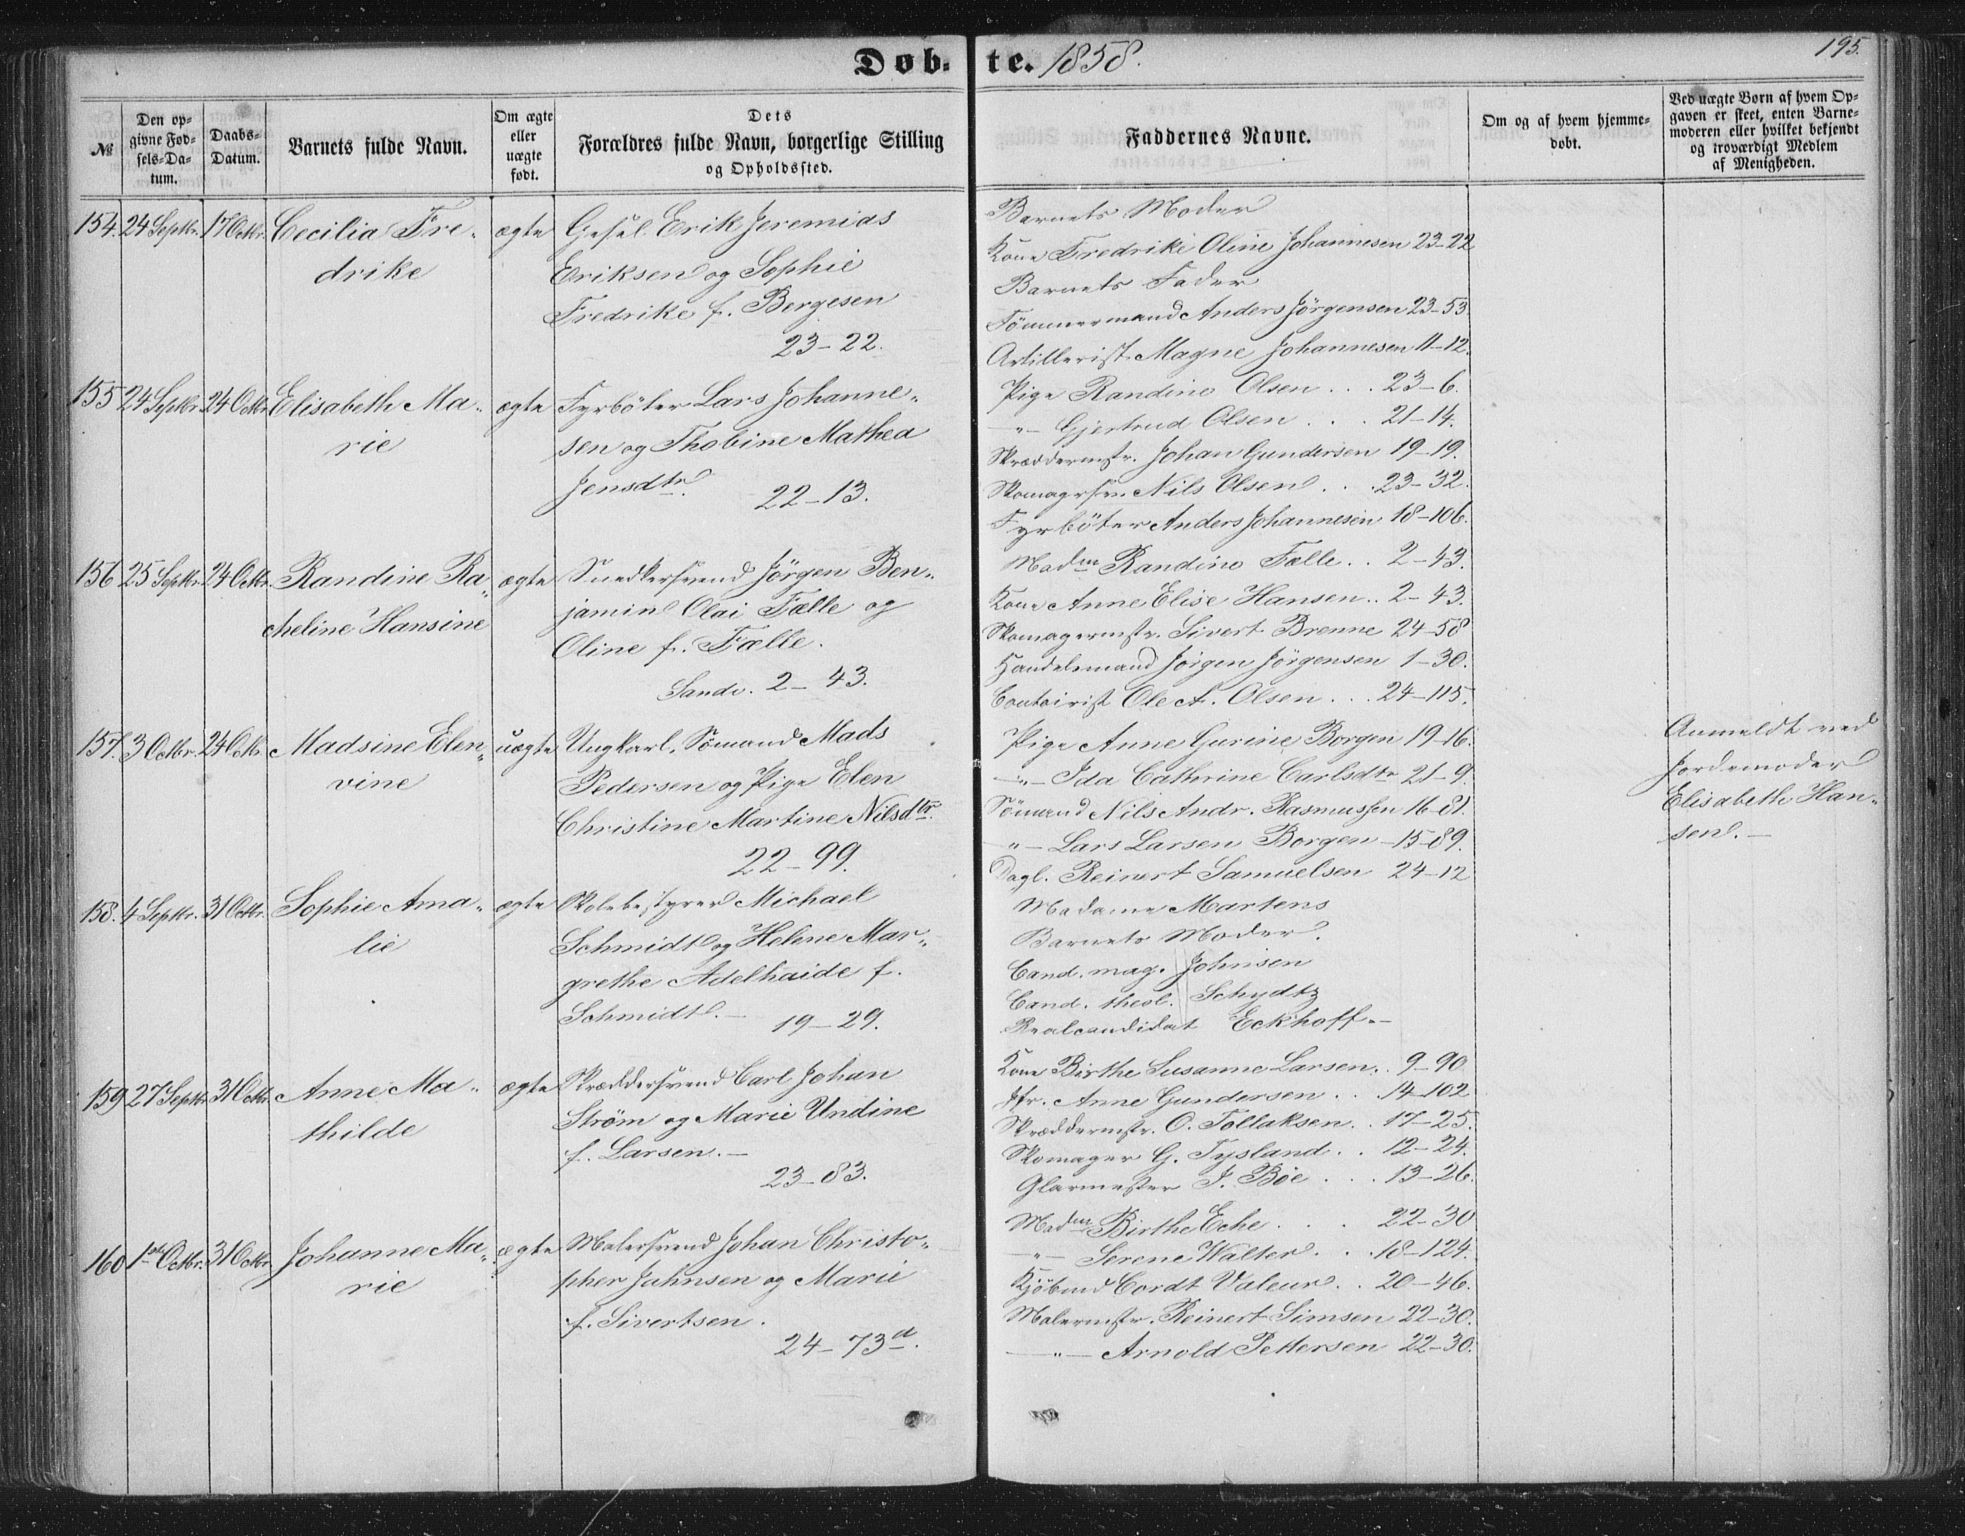 Døb- te. 1858. 195.
№ Den opgivne Fødsels-Datum. Daabs-Datum. Barnets fulde Navn. Om ægte eller uægte født. Dets Forældres fulde Navn, borgerlige Stilling og Opholdssted. Faddernes Navne. Om og af hvem hjemmedøbt. Ved uægte Børn af hvem Opgaven er skeet, enten Barnemoderen eller hvilket bekjendt og troværdigt Medlem af Menigheden.
154. 24 Septbr. 17 Octbr. Cecilia Fre-
drike
ægte
Gesel Erik Jeremias
Eriksen og Sophie
Fredrike f. Bergesen
23-22.
Barnets Moder
Kone Fredrike Oline Johannesen 23-22
Barnets Fader
Tømmermand Anders Jörgensen 23-53
Artillerist Magne Johannesen 11-12.
155 24 Septbr. 24 Octbr. Elisabeth Ma-
rie
ægte
Fyrböter Lars Johanne-
sen og Thobine Mathea
Jensdtr.
22-13.
Pige Randine Olsen . . . 23-6.
-"- Gjertrud Olsen . . . 21-14.
Skræddermstr. Johan Gundersen 19-19.
Skomagersv. Nils Olsen . . . 23-32.
Fyrböter Anders Johannesen 18-106.
156 25 Septbr. 24 Octbr. Randine Ra-
cheline Hansine
ægte
Snedkersvend Jörgen Ben-
jamin Olai Fælle og
Oline f. Fælle.
Sandv. 2-43.
Madm Randine Fælle . . 2-43.
Kone Anne Elise Hansen . . 2-43.
Skomagermstr. Sivert Brenne 24-58
Handelsmand Jörgen Jörgensen 1-30.
Contoirist Ole A. Olsen . . . 24-115.
157. 3 Octbr. 24 Octbr. Madsine Elen-
vine
uægte
Ungkarl, Sömand Mads
Pedersen og Pige Elen
Christine Martine Nilsdtr.
22-99.
Pige Anne Gurine Borgen 19-16.
-"- Ida Cathrine Carlsdtr 21-9.
Sömand Nils Andr. Rasmussen 16-81.
-"- Lars Larsen Borgen 15-89.
Dagl. Reinert Samuelsen 24-12
Anmeldt ved
Jordemoder
Elisabeth Han-
sen.-
158. 4 Septbr. 31 Octbr. Sophie Ama-
lie
ægte
Skolebestyrer Michael
Schmidt og Helene Mar-
grethe Adelhaide f.
Schmidt.-
19-29.
Madame Martens
Barnets Moder.
Cand. mag. Johnsen
Cand. theol. Schydtz
Realcandidat Eckhoff.-
159 27 Septbr. 31 Octbr. Anne Ma-
thilde
ægte
Skræddersvend Carl Johan
Strøm og Marie Undine
f. Larsen.-
23-83.
Kone Birthe Susanne Larsen . . 9-90
Jfr. Anne Gundersen . . . 14-102
Skræddermstr. O. Tollaksen . . 17-25.
Skomager G. Tysland . . 12-24.
Glarmester J. Böe . . . 13-26.
160 1ste Octbr. 31 Octbr. Johanne Ma-
rie
ægte
Malersvend Johan Christo-
pher Jahnsen og Marie
f. Sivertsen.
24-73d.
Madm Birthe Eche . . . 22-30
-"- Serene Walter . . . 18-124.
Kjöbmd Cordt Valeur . . 20-46.
Malermstr. Reinert Simsen 22-30.
-"- Arnold Pettersen 22-30.